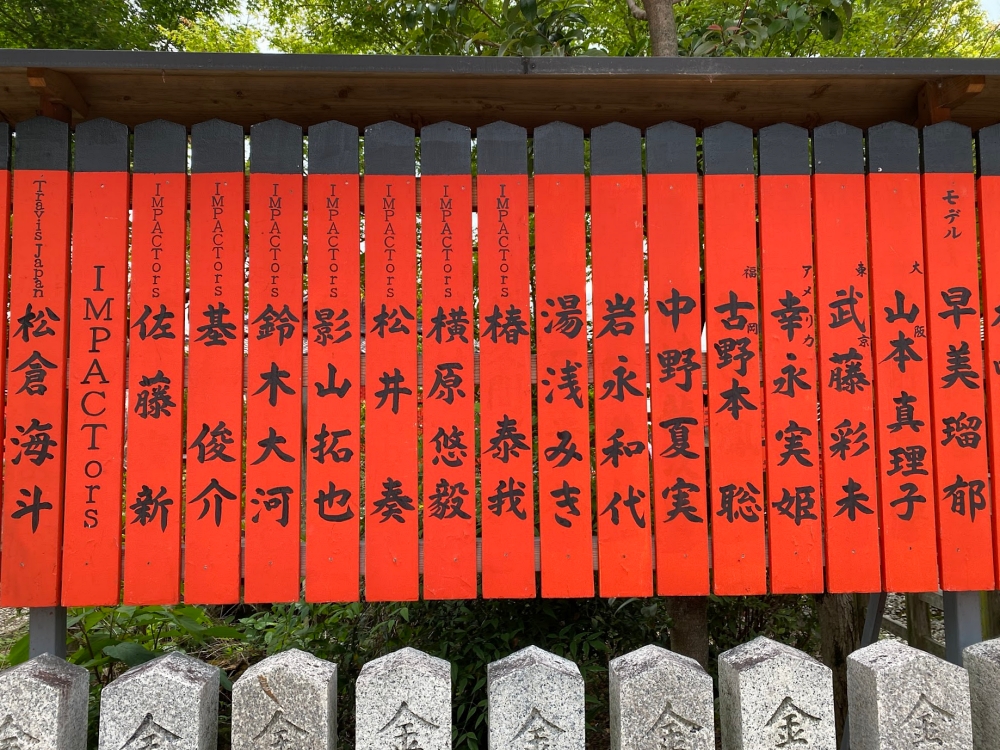 Travis Japan 松倉海斗
IMPACTors
IMPACTors 佐藤 新
IMPACTors 基 俊介
IMPACTors 鈴木大河
IMPACTors 影山拓也
IMPACTors 松井 奏
IMPACTors 横原悠毅
IMPACTors 椿 泰我
湯浅みき
岩永和代
中野夏実
福岡 古野本 聡
アメリカ 幸永実姫
東京 武藤彩未
大阪 山本真理子
モデル 早美瑠郁
金
金
金
金
金
金
金
金